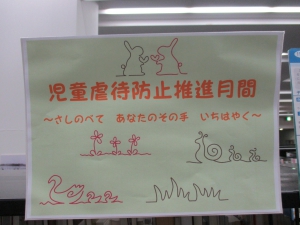 児童虐待防止推進月間
～さしのべて　あなたのその手　いちはやく～